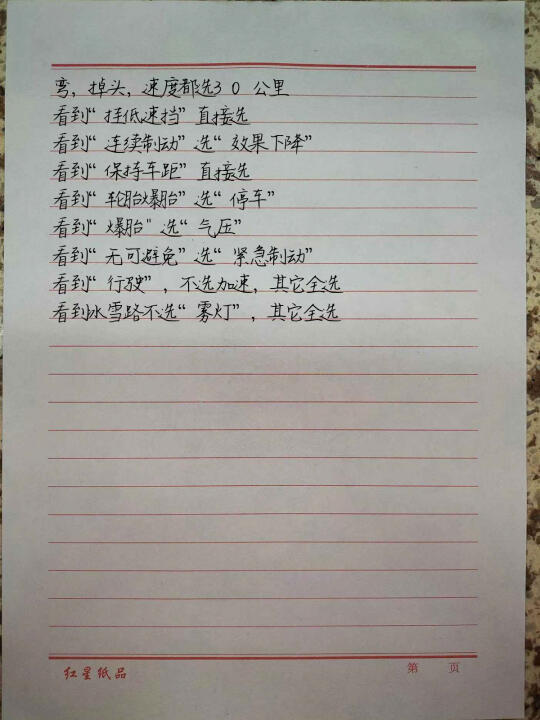 弯，掉头，速度都选30 公里
看到“挂低速挡”直接选
看到“连续制动”选“效果下降”
看到“保持车距”直接选
看到“轮胎爆胎”选“停车”
看到“爆胎"选“气压”
看到“无可避免”选“紧急制动”
看到“行驶”，不选加速，其它全选
看到冰雪路不选“雾灯”，其它全选
红星纸品
第 页